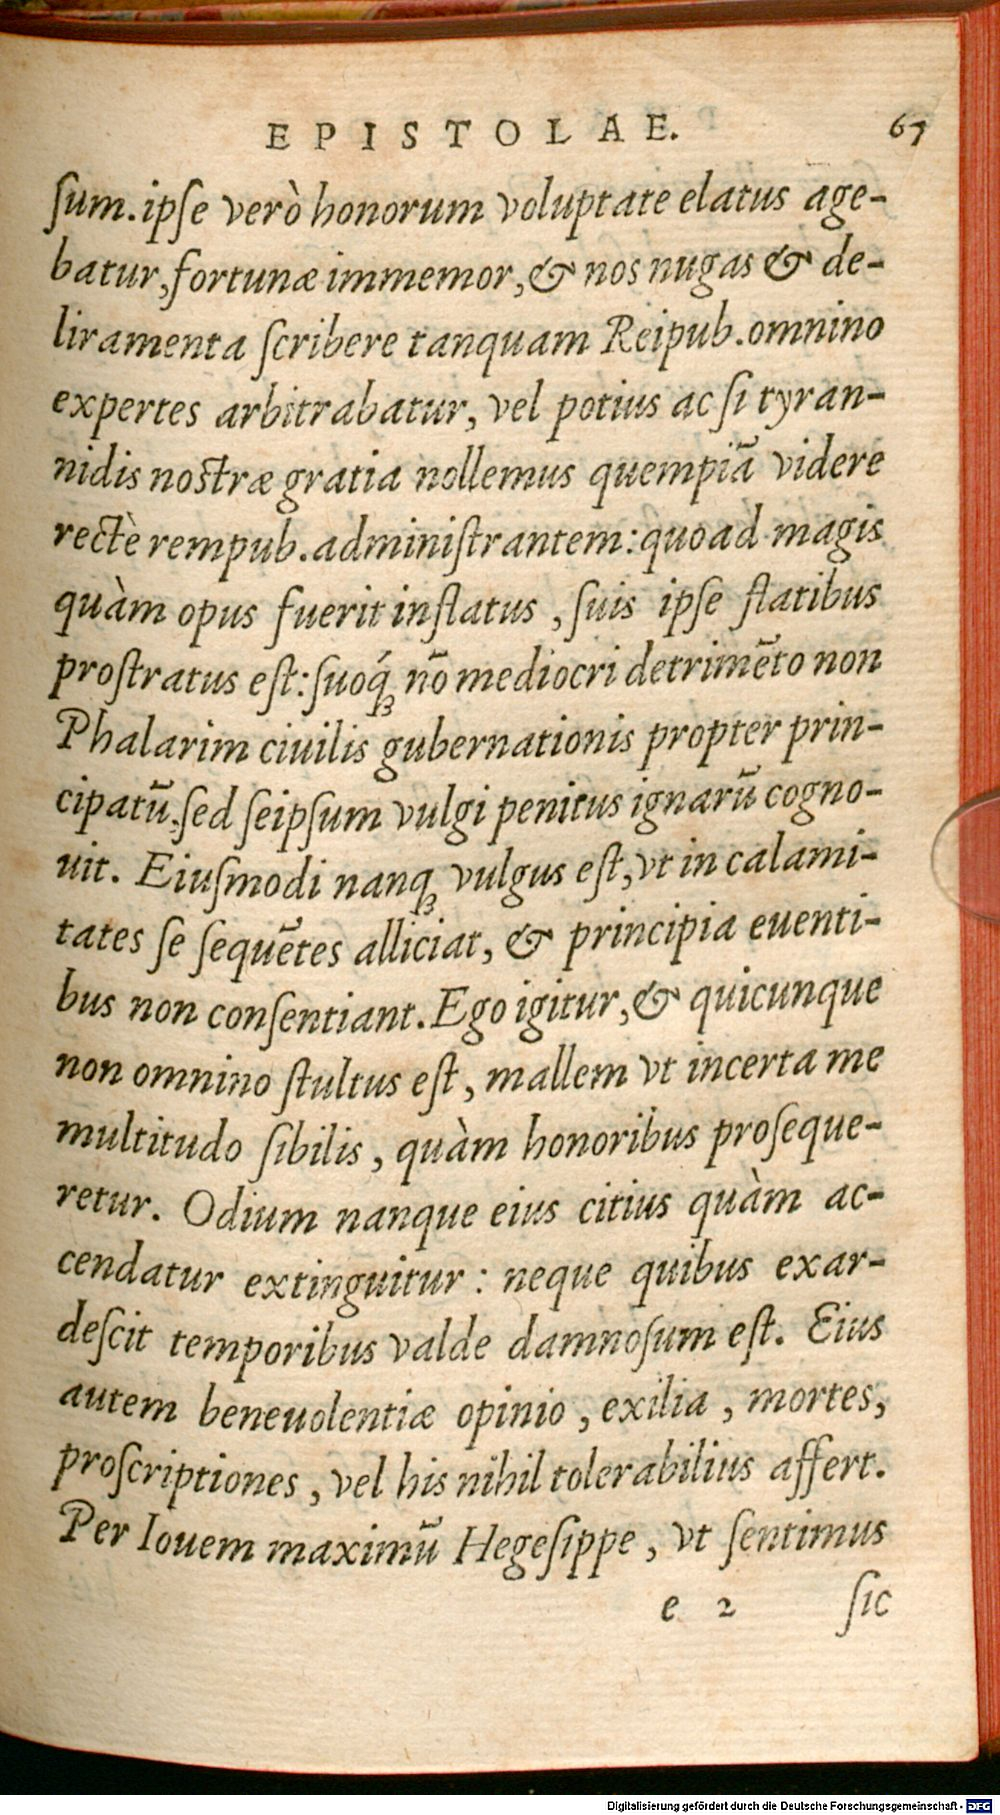 EPISTOLAE. 67
ſum. ipſe verò honorum voluptate elatus age-
batur, fortunæ immemor, & nos nugas & de-
liramenta ſcribere tanquam Reipub. omnino
expertes arbitrabatur, vel potius ac ſi tyran-
nidis noſtræ gratia nollemus quempiā videre
rectè rempub. adminiſtrantem: quoad magis
quàm opus fuerit inflatus, ſuis ipſe flatibus
proſtratus eſt: ſuoq́ꝫ nō mediocri detrimēto non
Phalarim ciuilis gubernationis propter prin-
cipatū, ſed ſeipſum vulgi penitus ignarū cogno-
uit. Eiuſmodi nanqꝫ vulgus eſt, vt in calami-
tates ſe ſequētes alliciat, & principia euenti-
bus non conſentiant. Ego igitur, & quicunque
non omnino ſtultus eſt, mallem vt incerta me
multitudo ſibilis, quàm honoribus proſeque-
retur. Odium nanque eius citius quàm ac-
cendatur extinguitur: neque quibus exar-
deſcit temporibus valde damnoſum eſt. Eius
autem beneuolentiæ opinio, exilia, mortes,
proſcriptiones, vel his nihil tolerabilius affert.
Per Iouem maximū Hegeſippe, vt ſentimus
e 2 ſic
Digitalisierung gefördert durch die Deutsche Forschungsgemeinschaft - DFG